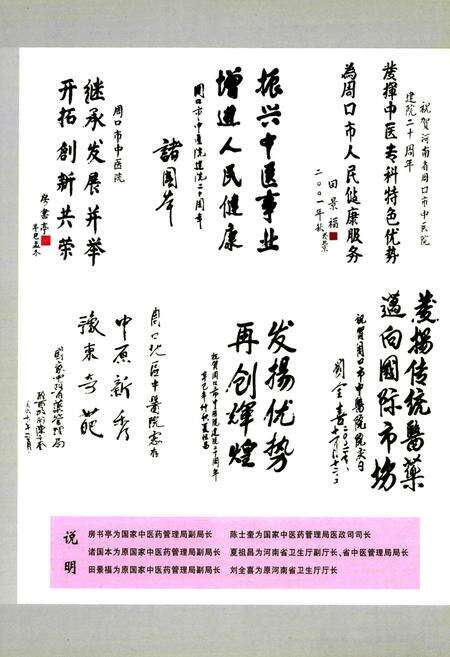 祝贺河南省周口市中医院
建院二十周年
发揮中医专科特色优势
為周口市人民健康服务
田景福
二〇〇一年秋
振兴中医事业
增进人民健康
周口市中医院建院二十周年
諸國本
周口市中医院
继承发展并举
开拓創新共荣
房書亭
辛巳孟冬
發揚传统醫藥
邁向國际市场
祝贺周口市中醫院院庆日
劉全喜
发揚优势
再创輝煌
祝贺周口市中医院建院二十周年
辛巳年仲秋夏祖昌
周口地区中醫院惠存
中原新秀
豫東奇葩
國家中医药管理局
说明
房书亭为国家中医药管理局副局长
陈士奎为国家中医药管理局医政司司长
诸国本为原国家中医药管理局副局长
夏祖昌为河南省卫生厅副厅长、省中医管理局局长
田景福为原国家中医药管理局副局长
刘全喜为原河南省卫生厅厅长